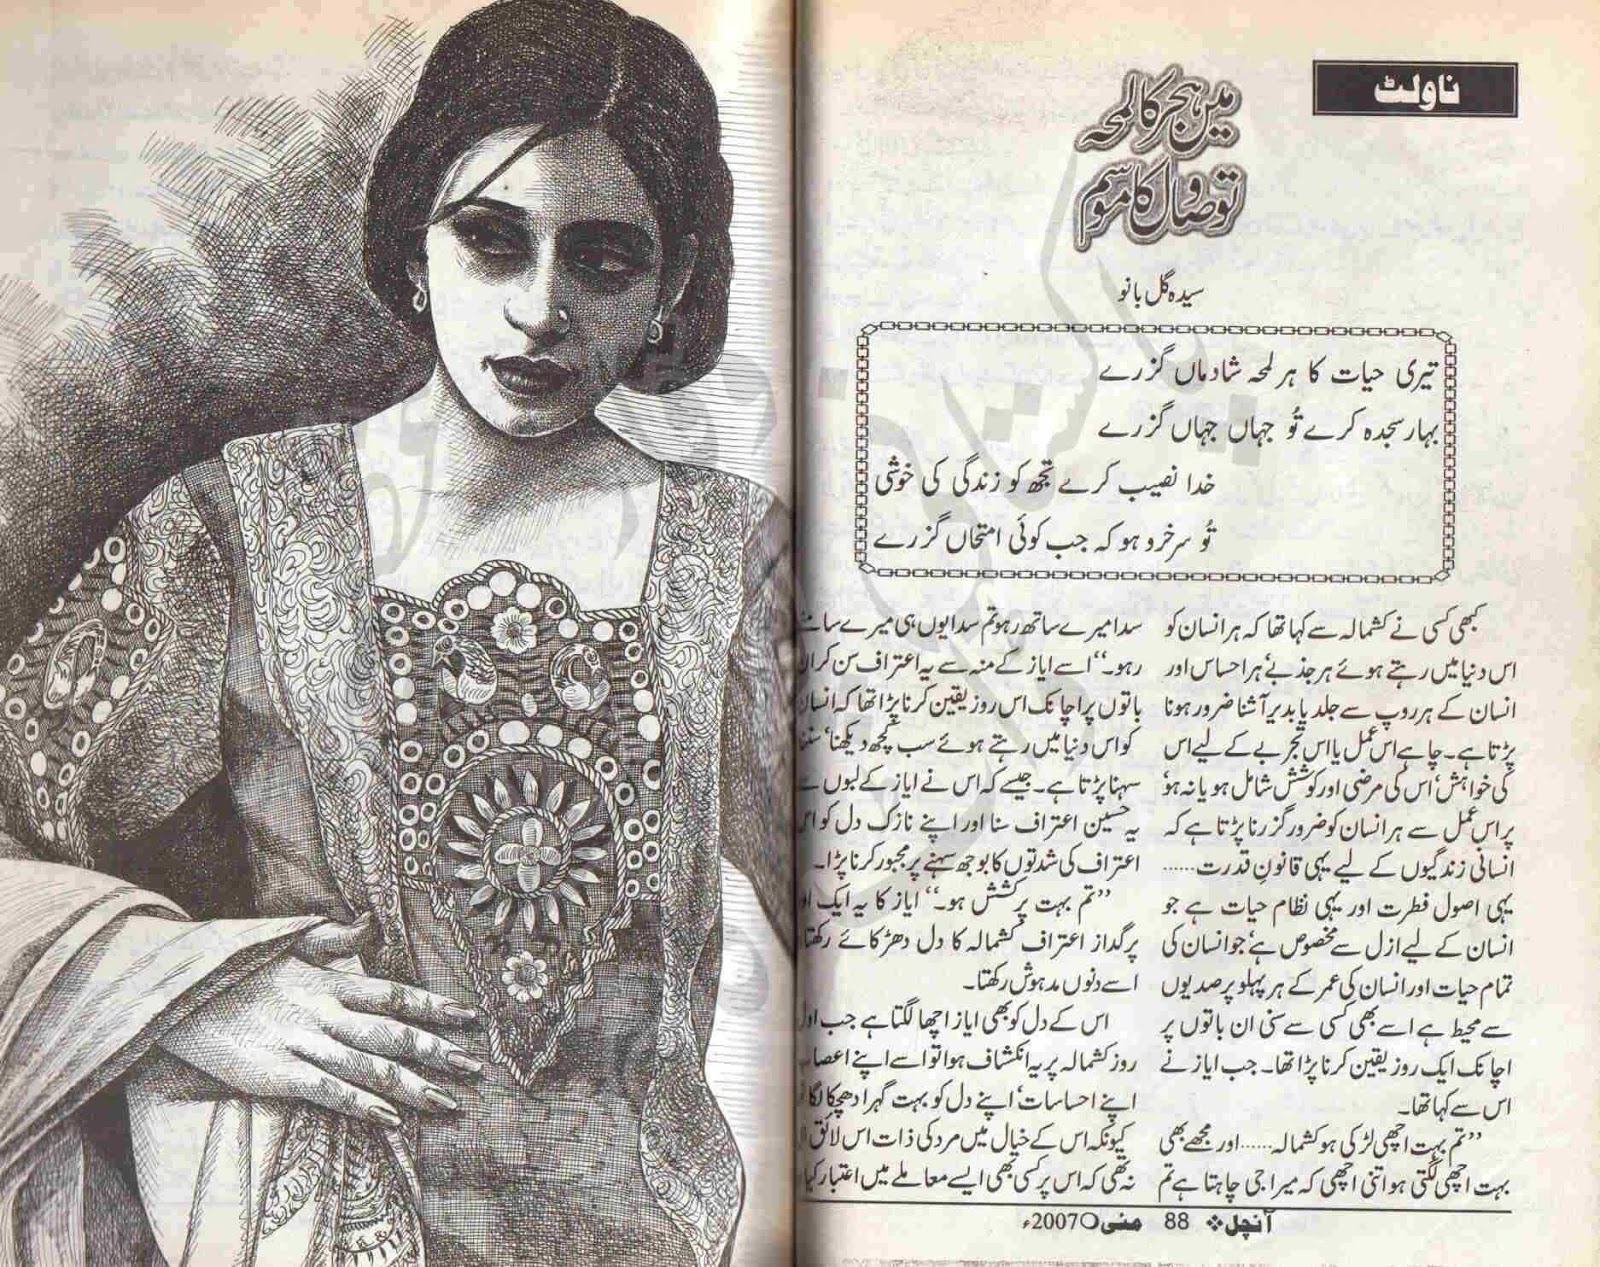 ناولٹ
میں ہجر کا لمحہ
تو وصال کا موسم
سیدہ گل بانو
تیری حیات کا ہر لمحہ شادماں گزرے
بہار سجدہ کرے تُو جہاں جہاں گزرے
خدا نصیب کرے تجھ کو زندگی کی خوشی
تُو سرخرو ہو کہ جب کوئی امتحاں گزرے
کبھی کسی نے کشمالہ سے کہا تھا کہ ہر انسان کو
اس دنیا میں رہتے ہوئے ہر جذبے‘ ہر احساس اور
انسان کے ہر روپ سے جلد یا بدیر آشنا ضرور ہونا
پڑتا ہے۔ چاہے اس عمل یا اس تجربے کے لیے اس
کی خواہش‘ اس کی مرضی اور کوشش شامل ہو یا نہ ہو‘
پر اس عمل سے ہر انسان کو ضرور گزرنا پڑتا ہے کہ
انسانی زندگیوں کے لیے یہی قانونِ قدرت......
یہی اصول فطرت اور یہی نظام حیات ہے جو
انسان کے لیے ازل سے مخصوص ہے‘ جو انسان کی
تمام حیات اور انسان کی عمر کے ہر پہلو پر صدیوں
سے محیط ہے اسے بھی کسی سے سنی ان باتوں پر
اچانک ایک روز یقین کرنا پڑا تھا۔ جب ایاز نے
اس سے کہا تھا۔
”تم بہت اچھی لڑکی ہو کشمالہ...... اور مجھے بھی
بہت اچھی لگتی ہو اتنی اچھی کہ میرا جی چاہتا ہے تم
سدا میرے ساتھ رہو تم سدا یوں ہی میرے سامنے
رہو۔“ اسے ایاز کے منہ سے یہ اعتراف سن کر ان
باتوں پر اچانک اس روز یقین کرنا پڑا تھا کہ انسان
کو اس دنیا میں رہتے ہوئے سب کچھ دیکھنا‘ سننا
سہنا پڑتا ہے۔ جیسے کہ اس نے ایاز کے لبوں سے
یہ حسین اعتراف سنا اور اپنے نازک دل کو اس
اعتراف کی شدتوں کا بوجھ سہنے پر مجبور کرنا پڑا۔
”تم بہت پرکشش ہو۔“ ایاز کا یہ ایک
پرگداز اعتراف کشمالہ کا دل دھڑکائے رکھتا
اسے دنوں مدہوش رکھتا۔
اس کے دل کو بھی ایاز اچھا لگتا ہے جب
روز کشمالہ پر یہ انکشاف ہوا تو اسے اپنے اعصاب
اپنے احساسات‘ اپنے دل کو بہت گہرا دھچکا لگا
کیونکہ اس کے خیال میں مرد کی ذات اس لائق
نہ تھی کہ اس پر کسی بھی ایسے معاملے میں اعتبار کیا
آنچل ❖ 88 مئی ○ 2007ء